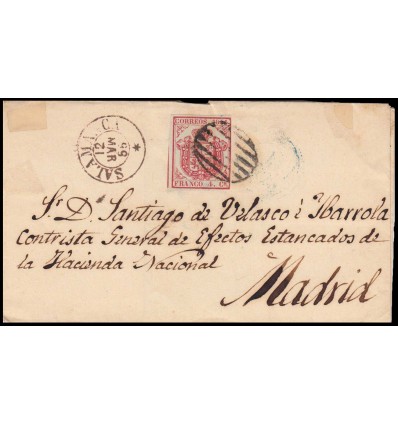 SALAMANCA
12
MAR
56
CORREOS
FRANCO 4 Cs
Sr. D. Santiago de Velasco é Ibarrola
Contrista General de Efectos Estancados de
la Hacienda Nacional
Madrid